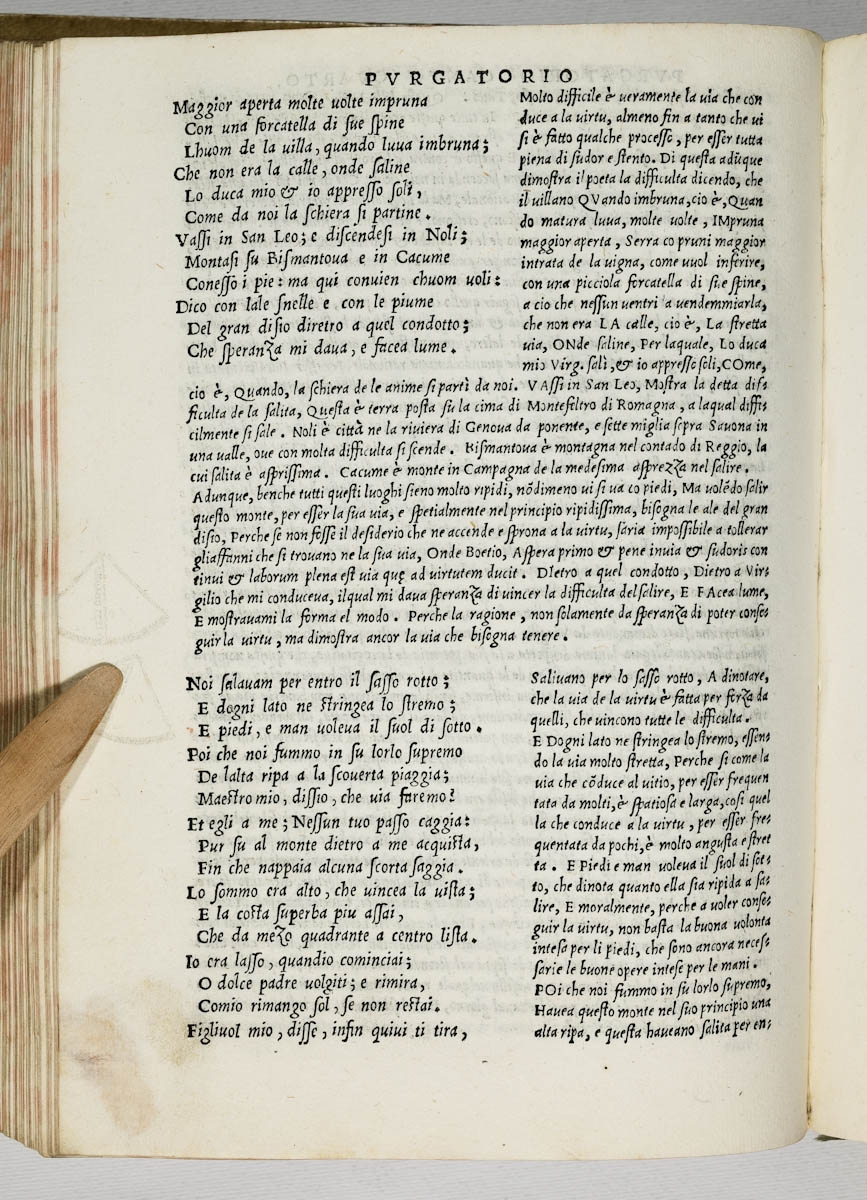 PVRGATORIO
Maggior aperta molte uolte impruna
Con una forcatella di sue spine
Lhuom de la uilla, quando luua imbruna;
Che non era la calle, onde saline
Lo duca mio & io appresso soli,
Come da noi la schiera si partine.
Vassi in San Leo; e discendesi in Noli;
Montasi su Bismantoua e in Cacume
Conesso i pie: ma qui conuien chuom uoli:
Dico con lale snelle e con le piume
Del gran disio diretro a quel condotto;
Che speranza mi daua, e facea lume.
Molto difficile è ueramente la uia che con
duce a la uirtu, almeno fin a tanto che ui
si è fatto qualche processo, per esser tutta
piena di sudor e stento. Di questa adūque
dimostra il poeta la difficulta dicendo, che
il uillano QVando imbruna, cio è, Quan
do matura luua, molte uolte, IMpruna
maggior aperta, Serra co pruni maggior
intrata de la uigna, come uuol inferire,
con una picciola forcatella di sue spine,
a cio che nessun uentri a uendemmiarla,
che non era LA calle, cio è, La stretta
uia, ONde saline, Per laquale, Lo duca
mio Virg. salì, & io appresso soli, COme,
cio è, Quando, la schiera de le anime si partì da noi. VAssi in San Leo, Mostra la detta dif-
ficulta de la salita, Questa è terra posta su la cima di Montefeltro di Romagna, a laqual diffi-
cilmente si sale. Noli è città ne la riuiera di Genoua da ponente, e sette miglia sopra Sauona in
una ualle, oue con molta difficulta si scende. Bismantoua è montagna nel contado di Reggio, la
cui salita è asprissima. Cacume è monte in Campagna de la medesima asprezza nel salire.
Adunque, benche tutti questi luoghi sieno molto ripidi, nōdimeno ui si ua co piedi, Ma uolēdo salir
questo monte, per esser la sua uia, e spetialmente nel principio ripidissima, bisogna le ale del gran
disio, Perche se non fosse il desiderio che ne accende e sprona a la uirtu, saria impossibile a tollerar
gliaffanni che si trouano ne la sua uia, Onde Boetio, Aspera primo & pene inuia & sudoris con
tinui & laborum plena est uia quę ad uirtutem ducit. DIetro a quel condotto, Dietro a Vir-
gilio che mi conduceua, ilqual mi daua speranza di uincer la difficulta del salire, E FAcea lume,
E mostrauami la forma el modo. Perche la ragione, non solamente da speranza di poter conse-
guir la uirtu, ma dimostra ancor la uia che bisogna tenere.
Noi salauam per entro il sasso rotto;
E dogni lato ne stringea lo stremo;
E piedi, e man uoleua il suol di sotto.
Poi che noi fummo in su lorlo supremo
De lalta ripa a la scouerta piaggia;
Maestro mio, dissio, che uia faremo?
Et egli a me; Nessun tuo passo caggia:
Pur su al monte dietro a me acquista,
Fin che nappaia alcuna scorta saggia.
Lo sommo era alto, che uincea la uista;
E la costa superba piu assai,
Che da mezo quadrante a centro lista.
Io era lasso, quandio cominciai;
O dolce padre uolgiti; e rimira,
Comio rimango sol, se non restai.
Figliuol mio, disse, infin quiui ti tira,
Saliuano per lo sasso rotto, A dinotare,
che la uia de la uirtu è fatta per forza da
quelli, che uincono tutte le difficulta.
E Dogni lato ne stringea lo stremo, essen-
do la uia molto stretta, Perche si come la
uia che cōduce al uitio, per esser frequen
tata da molti, è spatiosa e larga, cosi quel
la che conduce a la uirtu, per esser fre-
quentata da pochi, è molto angusta e stret
ta. E Piedi e man uoleua il suol di sot-
to, che dinota quanto ella sia ripida a sa-
lire, E moralmente, perche a uoler conse-
guir la uirtu, non basta la buona uolonta
intesa per li piedi, che sono ancora neces-
sarie le buone opere intese per le mani.
POi che noi fummo in su lorlo supremo,
Hauea questo monte nel suo principio una
alta ripa, e questa haueano salita per en-